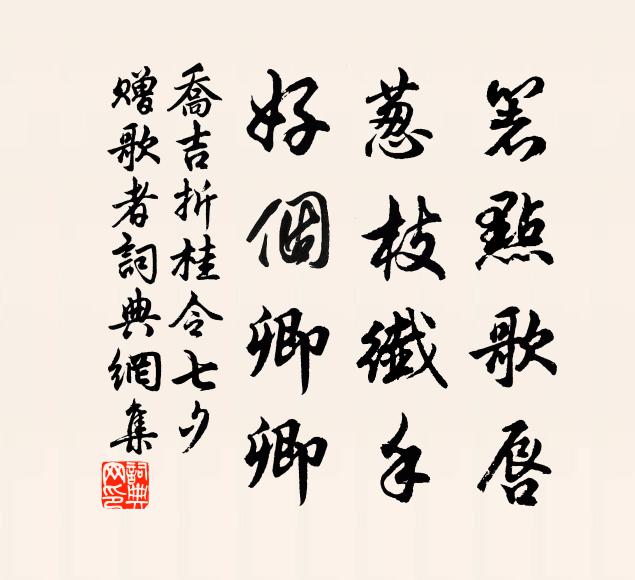 箸點歌唇
葱枝纖手
好個卿卿
喬吉折桂令七夕
贈歌者詞典網集
詞典
网印